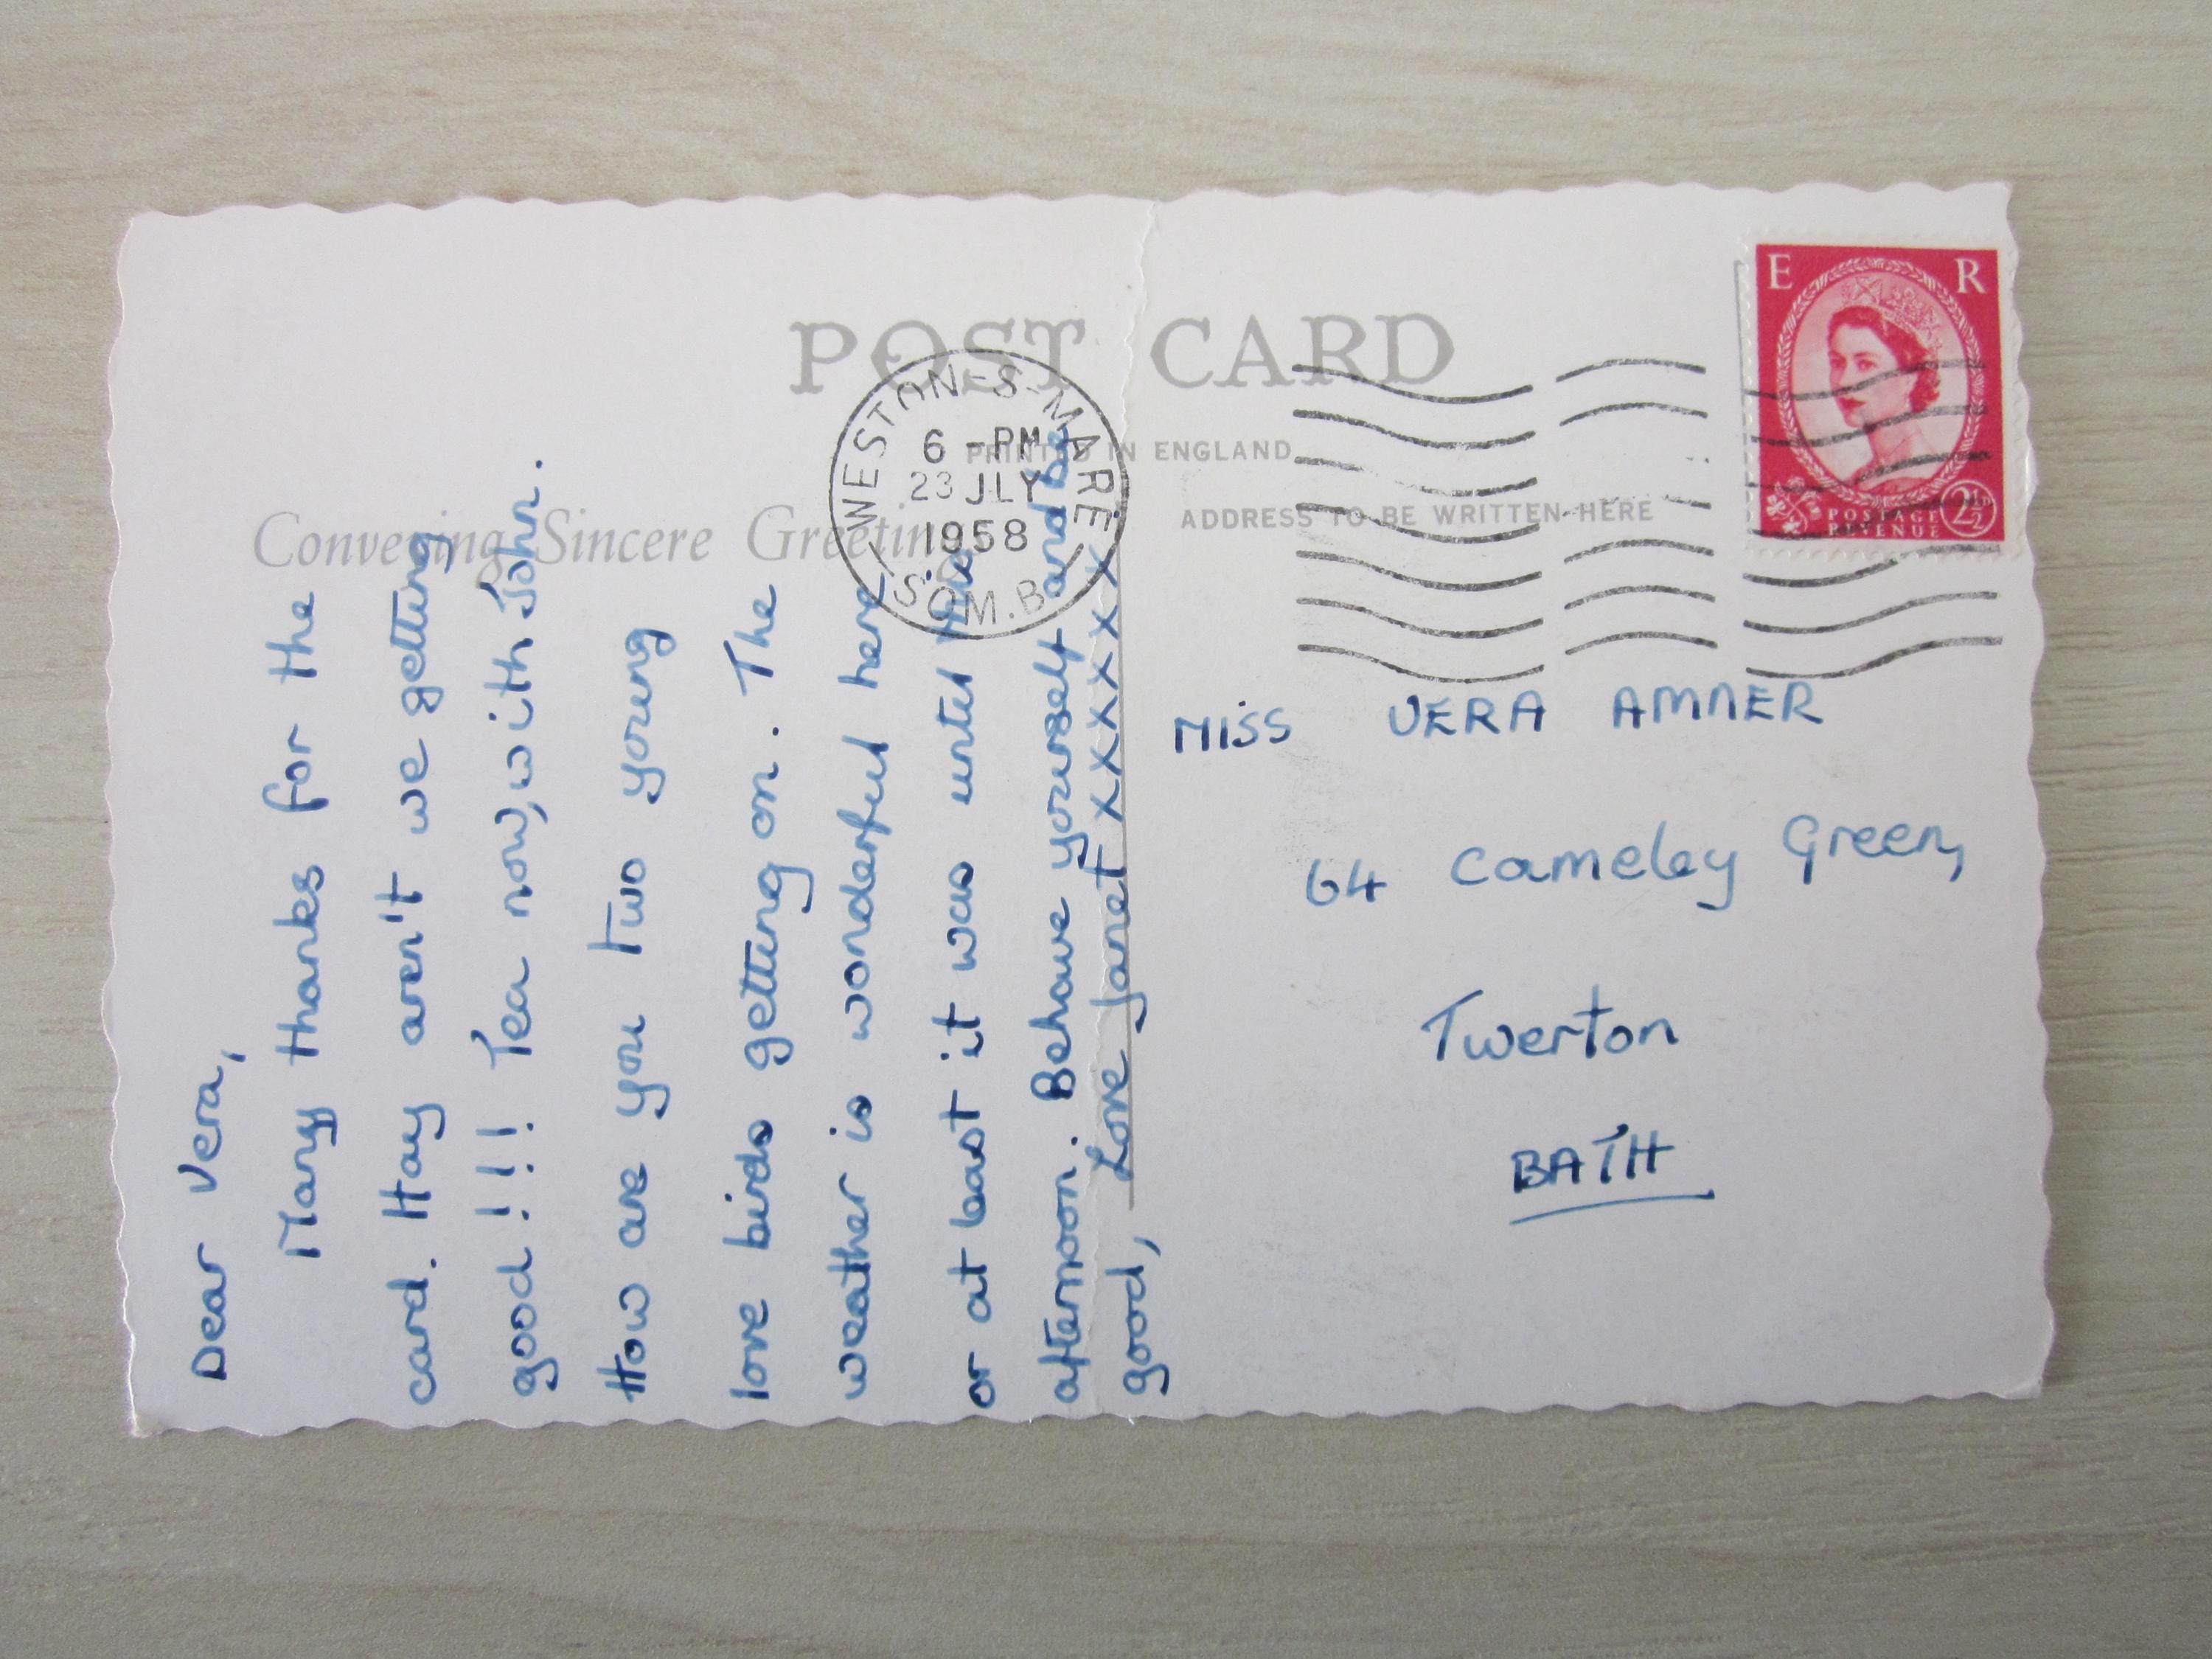 POST CARD
PRINTED IN ENGLAND
ADDRESS TO BE WRITTEN HERE
Conveying Sincere Greetings
WESTON-S-MARE
6 - PM
23 JLY
1958
SOM. B
E R
POSTAGE
REVENUE
2½
Dear Vera,
Many thanks for the
card. Hay aren't we getting
good !!!! Tea now, with John.
How are you two young
love birds getting on. The
weather is wonderful here
or at least it was until this
afternoon. Behave yourself and be
good, Love Janet xxxxxxx
MISS VERA AMNER
64 Cameley Green,
Twerton
BATH